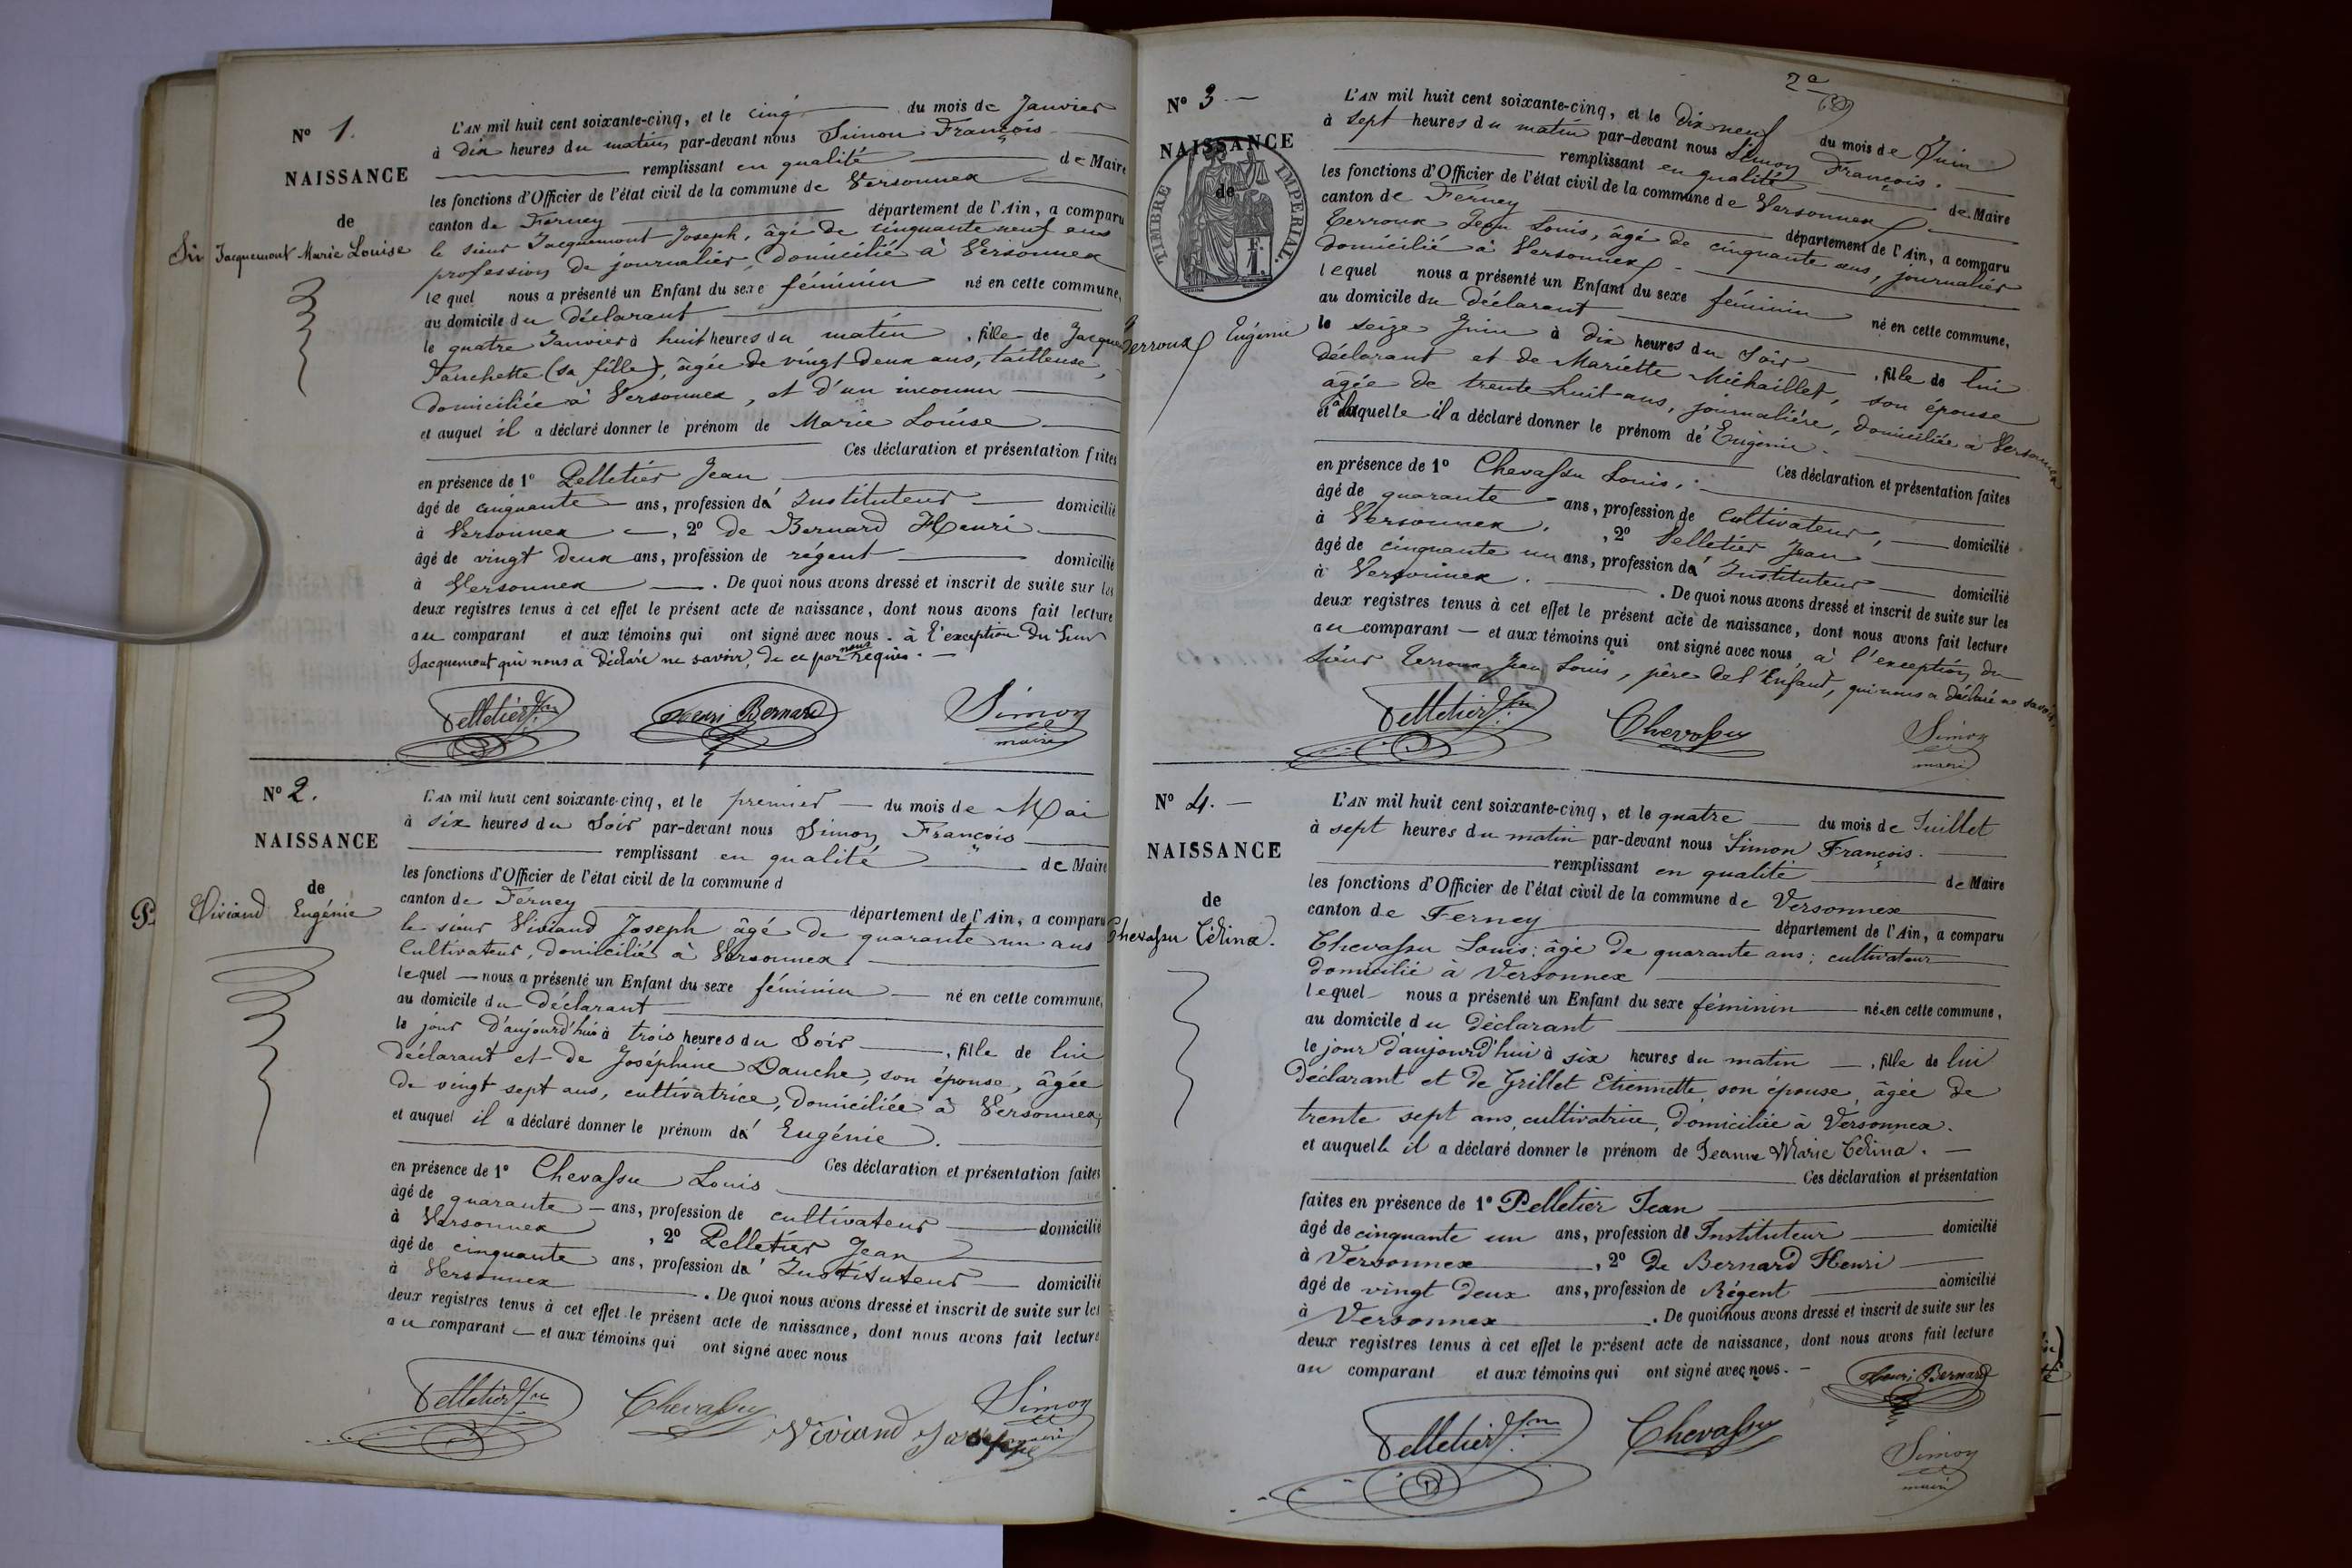 N° 1.
NAISSANCE
de
Jacquemont Marie Louise
L'AN mil huit cent soixante-cinq, et le cinq du mois de Janvier
à dix heures du matin par-devant nous Simon François
remplissant en qualité de Maire
les fonctions d'Officier de l'état civil de la commune de Versonnex
canton de Ferney département de l'Ain, a comparu
le sieur Jacquemont Joseph, âgé de cinquante neuf ans
profession de journalier, domicilié à Versonnex
lequel nous a présenté un Enfant du sexe féminin né en cette commune,
au domicile du déclarant
le quatre Janvier à huit heures du matin, fille de Jacquem
Fanchette (sa fille), âgée de vingt deux ans, tailleuse,
domiciliée à Versonnex, et d'un inconnu
et auquel il a déclaré donner le prénom de Marie Louise
Ces déclaration et présentation faites
en présence de 1° Pelletier Jean
âgé de cinquante ans, profession d' Instituteur domicilié
à Versonnex, 2° de Bernard Henri
âgé de vingt deux ans, profession de régent domicilié
à Versonnex. De quoi nous avons dressé et inscrit de suite sur les
deux registres tenus à cet effet le présent acte de naissance, dont nous avons fait lecture
au comparant et aux témoins qui ont signé avec nous. à l'exception du Sieur
Jacquemont qui nous a déclaré ne savoir, de ce par nous requis.
Pelletier Jn Henri Bernard Simon
maire
N° 2.
NAISSANCE
de
P. Viviand Eugénie
L'AN mil huit cent soixante-cinq, et le premier du mois de Mai
à six heures du Soir par-devant nous Simon François
remplissant en qualité de Maire
les fonctions d'Officier de l'état civil de la commune d
canton de Ferney département de l'Ain, a comparu
le sieur Viviand Joseph âgé de quarante un ans
Cultivateur, domicilié à Versonnex
lequel nous a présenté un Enfant du sexe féminin né en cette commune,
au domicile du déclarant
le jour d'aujourd'hui à trois heures du Soir, fille de lui
déclarant et de Joséphine Dauche, son épouse, âgée
de vingt sept ans, cultivatrice, domiciliée à Versonnex;
et auquel il a déclaré donner le prénom d' Eugénie.
Ces déclaration et présentation faites
en présence de 1° Chevassu Louis
âgé de quarante ans, profession de cultivateur domicilié
à Versonnex, 2° Pelletier Jean
âgé de cinquante ans, profession d' Instituteur domicilié
à Versonnex. De quoi nous avons dressé et inscrit de suite sur les
deux registres tenus à cet effet le présent acte de naissance, dont nous avons fait lecture
au comparant et aux témoins qui ont signé avec nous
Pelletier Jn Chevassu Viviand Joseph Simon
maire
2e
N° 3
NAISSANCE
de
TIMBRE IMPERIAL.
Terroux Eugénie
L'AN mil huit cent soixante-cinq, et le Dix neuf du mois de Juin
à Sept heures du matin par-devant nous Simon François.
remplissant en qualité de Maire
les fonctions d'Officier de l'état civil de la commune de Versonnex
canton de Ferney département de l'Ain, a comparu
Terroux Jean Louis, âgé de cinquante ans, journalier
domicilié à Versonnex
lequel nous a présenté un Enfant du sexe féminin né en cette commune,
au domicile du déclarant
le seize Juin à dix heures du Soir, fille de lui
déclarant et de Mariette Michaillet, son épouse
âgée de trente huit ans, journalière, domiciliée à Versonnex
et à laquelle il a déclaré donner le prénom d' Eugénie.
Ces déclaration et présentation faites
en présence de 1° Chevassu Louis,
âgé de quarante ans, profession de Cultivateur, domicilié
à Versonnex, 2° Pelletier Jean
âgé de cinquante un ans, profession d' Instituteur domicilié
à Versonnex. De quoi nous avons dressé et inscrit de suite sur les
deux registres tenus à cet effet le présent acte de naissance, dont nous avons fait lecture
au comparant et aux témoins qui ont signé avec nous, à l'exception du
Sieur Terroux Jean Louis, père de l'Enfant, qui nous a déclaré ne savoir.
Pelletier Jn Chevassu Simon
maire
N° 4.
NAISSANCE
de
Chevassu Célina.
L'AN mil huit cent soixante-cinq, et le quatre du mois de Juillet
à sept heures du matin par-devant nous Simon François.
remplissant en qualité de Maire
les fonctions d'Officier de l'état civil de la commune de Versonnex
canton de Ferney département de l'Ain, a comparu
Chevassu Louis; âgé de quarante ans; cultivateur
domicilié à Versonnex
lequel nous a présenté un Enfant du sexe féminin né en cette commune,
au domicile du déclarant
le jour d'aujourd'hui à six heures du matin, fille de lui
déclarant et de Grillet Etiennette, son épouse, âgée de
trente sept ans, cultivatrice, domiciliée à Versonnex.
et auquelle il a déclaré donner le prénom de Jeanne Marie Célina.
Ces déclaration et présentation
faites en présence de 1° Pelletier Jean
âgé de cinquante un ans, profession d' Instituteur domicilié
à Versonnex, 2° de Bernard Henri
âgé de vingt deux ans, profession de Régent domicilié
à Versonnex. De quoi nous avons dressé et inscrit de suite sur les
deux registres tenus à cet effet le présent acte de naissance, dont nous avons fait lecture
au comparant et aux témoins qui ont signé avec nous. Henri Bernard
Pelletier Jn Chevassu Simon
maire